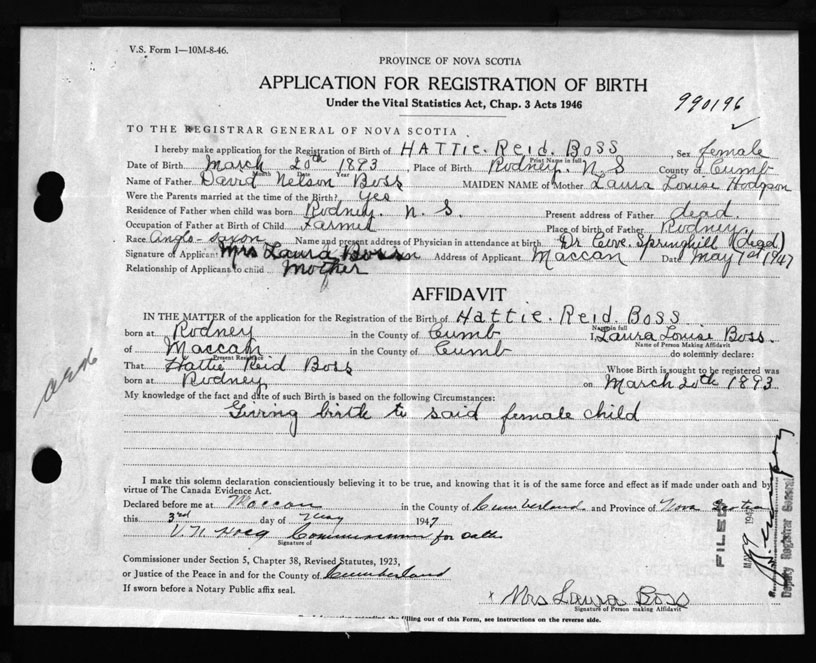 V.S. Form 1—10M-8-46.
PROVINCE OF NOVA SCOTIA
APPLICATION FOR REGISTRATION OF BIRTH
Under the Vital Statistics Act, Chap. 3 Acts 1946
990196
TO THE REGISTRAR GENERAL OF NOVA SCOTIA.
I hereby make application for the Registration of Birth of HATTIE. Reid. BOSS Sex female
Print Name in full
Date of Birth March 20th 1893, Place of Birth Rodney. N S County of Cumb
Month Date Year
Name of Father David Nelson Boss MAIDEN NAME of Mother Laura Louise Hodgson
Were the Parents married at the time of the Birth? Yes
Residence of Father when child was born Rodney. N. S. Present address of Father dead.
Occupation of Father at Birth of Child Farmer Place of birth of Father Rodney
Race Anglo-Saxon Name and present address of Physician in attendance at birth Dr Cove. Springhill (dead)
Signature of Applicant Mrs Laura Boss Address of Applicant Maccan Date May 1st 1947
Relationship of Applicant to child Mother
AFFIDAVIT
IN THE MATTER of the application for the Registration of the Birth of Hattie. Reid. BOSS
Name in full
born at Rodney in the County of Cumb I, Laura Louise Boss.
Name of Person Making Affidavit
of Maccan in the County of Cumb do solemnly declare:
Present Residence
That Hattie Reid Boss Whose Birth is sought to be registered was
born at Rodney on March 20th 1893
My knowledge of the fact and date of such Birth is based on the following Circumstances:
Giving birth to said female child
I make this solemn declaration conscientiously believing it to be true, and knowing that it is of the same force and effect as if made under oath and by
virtue of The Canada Evidence Act.
Declared before me at Maccan in the County of Cumberland and Province of Nova Scotia
this 3rd day of May 1947
Commissioner for oaths
Signature of
Commissioner under Section 5, Chapter 38, Revised Statutes, 1923,
or Justice of the Peace in and for the County of Cumberland
If sworn before a Notary Public affix seal.
x Mrs Laura Boss
Signature of Person making Affidavit
filling out of this Form, see instructions on the reverse side.
FILED
MAY 9 1947
Deputy Registrar General